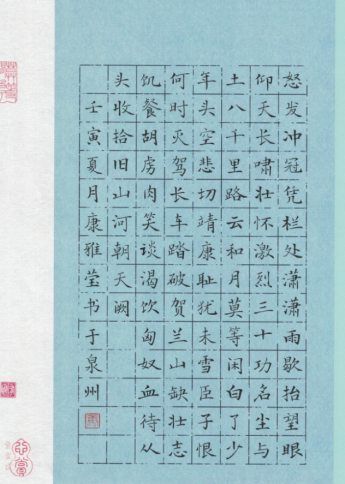 怒发冲冠凭栏处潇潇雨歇抬望眼
仰天长啸壮怀激烈三十功名尘与
土八千里路云和月莫等闲白了少
年头空悲切靖康耻犹未雪臣子恨
何时灭驾长车踏破贺兰山缺壮志
饥餐胡虏肉笑谈渴饮匈奴血待从
头收拾旧山河朝天阙
壬寅夏月康雅莹书于泉州